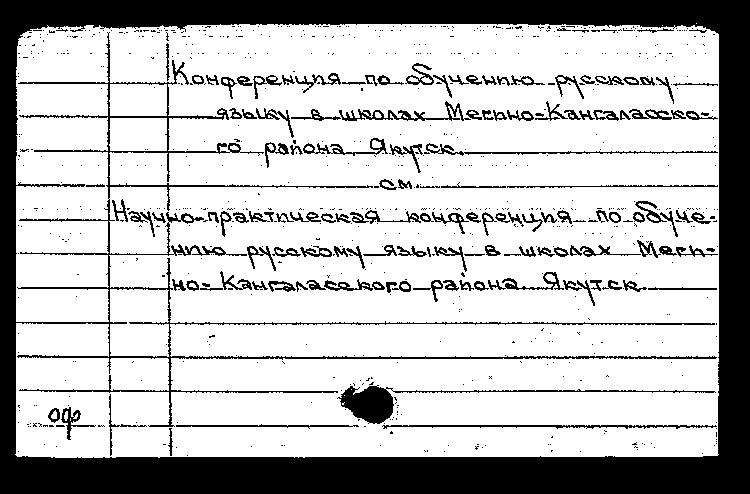 Конференция по обучению русскому
языку в школах Мегино-Кангаласско-
го района. Якутск.
см.
Научно-практическая конференция по обуче-
нию русскому языку в школах Меги-
но-Кангаласского района. Якутск.
оф